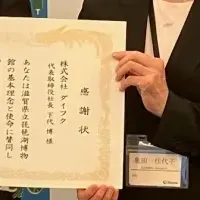 感謝状
株式会社 ダイフク
代表取締役社長 下代 博 様
あなたは滋賀県立琵琶湖博物
館の基本理念と使命に賛同し